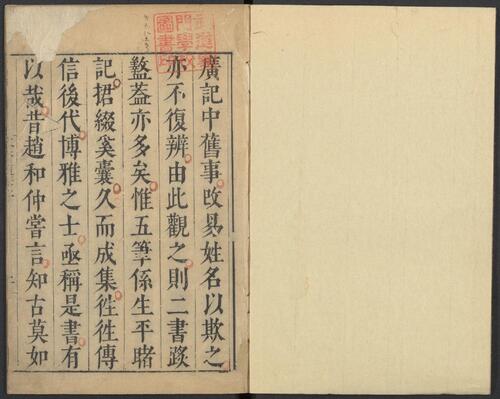 武道專
門學校
圖書印
廣記中舊事改易姓名以欺之
亦不復辨由此觀之則二書踳
盭蓋亦多矣惟五筆係生平睹
記捃綴奚囊久而成集徃徃傳
信後代博雅之士亟稱是書有
以哉昔趙和仲嘗言知古莫如